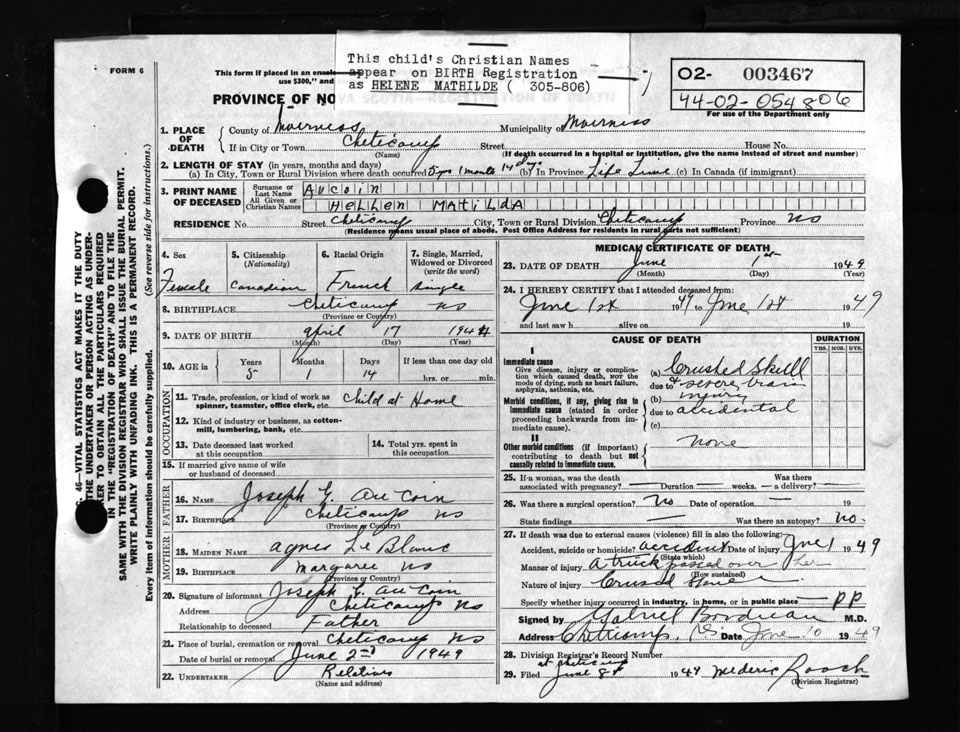 FORM 6
This form if placed in an
use $300," and
This child's Christian Names
appear on BIRTH Registration
as HELENE MATHILDE ( 305-806)
02- 003467
44-02-054806
For use of the Department only
PROVINCE OF NOVA SCOTIA—REGISTRATION OF DEATH
1. PLACE OF DEATH
County of Inverness Municipality of Inverness
If in City or Town Cheticamp Street House No.
(Name) (If death occurred in a hospital or institution, give the name instead of street and number)
2. LENGTH OF STAY (in years, months and days)
(a) In City, Town or Rural Division where death occurred 5 yrs 1 month 14 days (b) In Province Life Time (c) In Canada (if immigrant)
3. PRINT NAME OF DECEASED
Surname or Last Name AUCOIN
All Given or Christian Names HELLEN MATILDA
RESIDENCE No. Street Cheticamp City, Town or Rural Division Cheticamp Province NS
(Residence means usual place of abode. Post Office Address for residents in rural parts not sufficient)
4. Sex Female
5. Citizenship (Nationality) Canadian
6. Racial Origin French
7. Single, Married, Widowed or Divorced (write the word) Single
8. BIRTHPLACE Cheticamp NS
(Province or Country)
9. DATE OF BIRTH April 17 1944
(Month) (Day) (Year)
10. AGE in Years 5 Months 1 Days 14 If less than one day old hrs. or min.
OCCUPATION
11. Trade, profession, or kind of work as spinner, teamster, office clerk, etc. Child at Home
12. Kind of industry or business, as cotton-mill, lumbering, bank, etc.
13. Date deceased last worked at this occupation
14. Total yrs. spent in this occupation
15. If married give name of wife or husband of deceased
FATHER
16. NAME Joseph G. Au Coin
17. BIRTHPLACE Cheticamp NS
(Province or Country)
MOTHER
18. MAIDEN NAME Agnes Le Blanc
19. BIRTHPLACE Margaree NS
(Province or Country)
20. Signature of informant Joseph G. Au Coin
Address Cheticamp NS
Relationship to deceased Father
21. Place of burial, cremation or removal Cheticamp NS
Date of burial or removal June 2nd 1949
22. UNDERTAKER Relatives
(Name and address)
MEDICAL CERTIFICATE OF DEATH
23. DATE OF DEATH June 1st 1949
(Month) (Day) (Year)
24. I HEREBY CERTIFY that I attended deceased from:
June 1st 1949 to June 1st 1949
and last saw h alive on 19
CAUSE OF DEATH
DURATION
YRS. MOS. DYS.
I
Immediate cause
Give disease, injury or complication which caused death, NOT the mode of dying, such as heart failure, asphyxia, asthenia, etc.
Morbid conditions, if any, giving rise to immediate cause (stated in order proceeding backwards from immediate cause).
II
Other morbid conditions (if important) contributing to death but not causally related to immediate cause.
(a) Crushed Skull
due to & severe brain
(b) injury
due to accidental
(c)
None
25. If a woman, was the death associated with pregnancy? — Duration weeks. Was there a delivery? —
26. Was there a surgical operation? No Date of operation — 19
State findings — Was there an autopsy? No
27. If death was due to external causes (violence) fill in also the following:
Accident, suicide or homicide? accident Date of injury June 1 1949
(State which)
Manner of injury A truck passed over her
(How sustained)
Nature of injury Crushed
Specify whether injury occurred in industry, in home, or in public place PP
Signed by Gabriel Boudreau M.D.
Address Cheticamp, NS Date June 1949
28. Division Registrar's Record Number
29. Filed at Cheticamp June 8th 1949 Mederic Roach
(Division Registrar)
SEC. 46—VITAL STATISTICS ACT MAKES IT THE DUTY
OF THE UNDERTAKER OR PERSON ACTING AS UNDERTAKER TO OBTAIN ALL THE PARTICULARS REQUIRED
IN THE "REGISTRATION OF DEATH" AND TO FILE THE
SAME WITH THE DIVISION REGISTRAR WHO SHALL ISSUE THE BURIAL PERMIT.
WRITE PLAINLY WITH UNFADING INK. THIS IS A PERMANENT RECORD.
Every item of information should be carefully supplied. (See reverse side for instructions.)